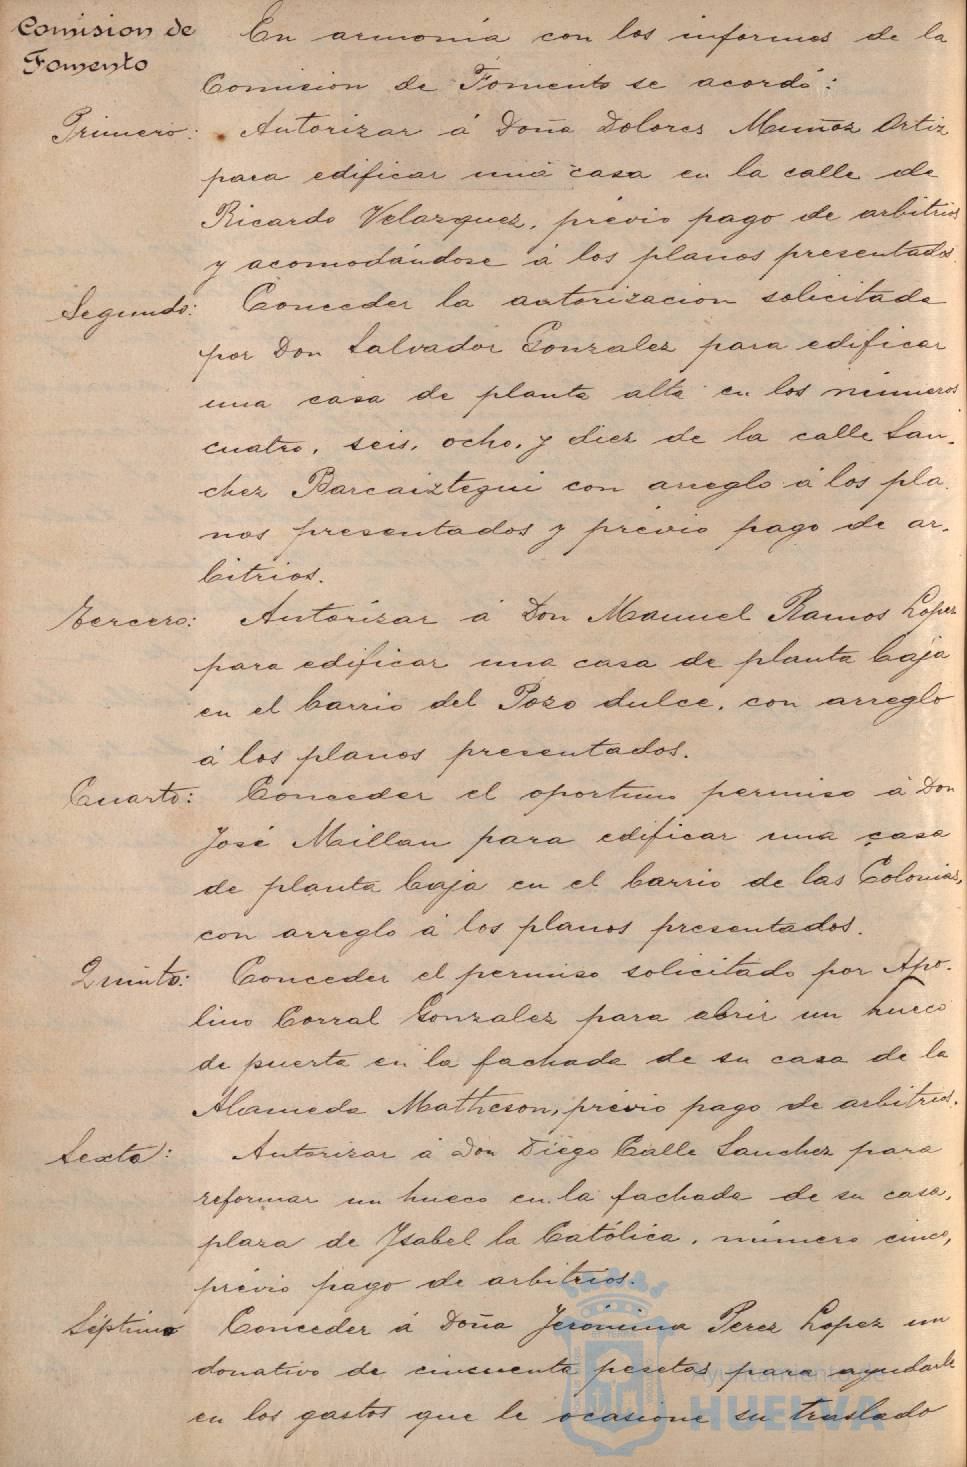 Comision de
Fomento
En armonía con los informes de la
Comision de Fomento se acordó:
Primero: Autorizar á Doña Dolores Muñoz Ortiz
para edificar una casa en la calle de
Ricardo Velazquez, prévio pago de arbitrios
y acomodándose á los planos presentados.
Segundo: Conceder la autorizacion solicitada
por Don Salvador Gonzalez para edificar
una casa de planta alta en los números
cuatro, seis, ocho, y diez de la calle San-
chez Barcaiztegui con arreglo á los pla-
nos presentados y prévio pago de ar-
bitrios.
Tercero: Autorizar á Don Manuel Ramos Lopez
para edificar una casa de planta baja
en el barrio del Pozo dulce, con arreglo
á los planos presentados.
Cuarto: Conceder el oportuno permiso á Don
José Millan para edificar una casa
de planta baja en el barrio de las Colonias,
con arreglo á los planos presentados.
Quinto: Conceder el permiso solicitado por Apo-
lino Corral Gonzalez para abrir un hueco
de puerta en la fachada de su casa de la
Alameda Matheson, prévio pago de arbitrios.
Sexto: Autorizar á Don Diego Calle Sanchez para
reformar un hueco en la fachada de su casa,
plaza de Ysabel la Católica, número cinco,
prévio pago de arbitrios.
Séptimo Conceder á Doña Jerónima Perez Lopez un
donativo de cincuenta pesetas para ayudarle
en los gastos que le ocasione su traslado
Ayuntamiento de
HUELVA